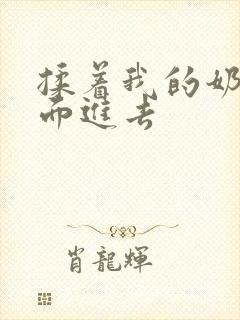 揉着我的奶
而進去
肖龍輝